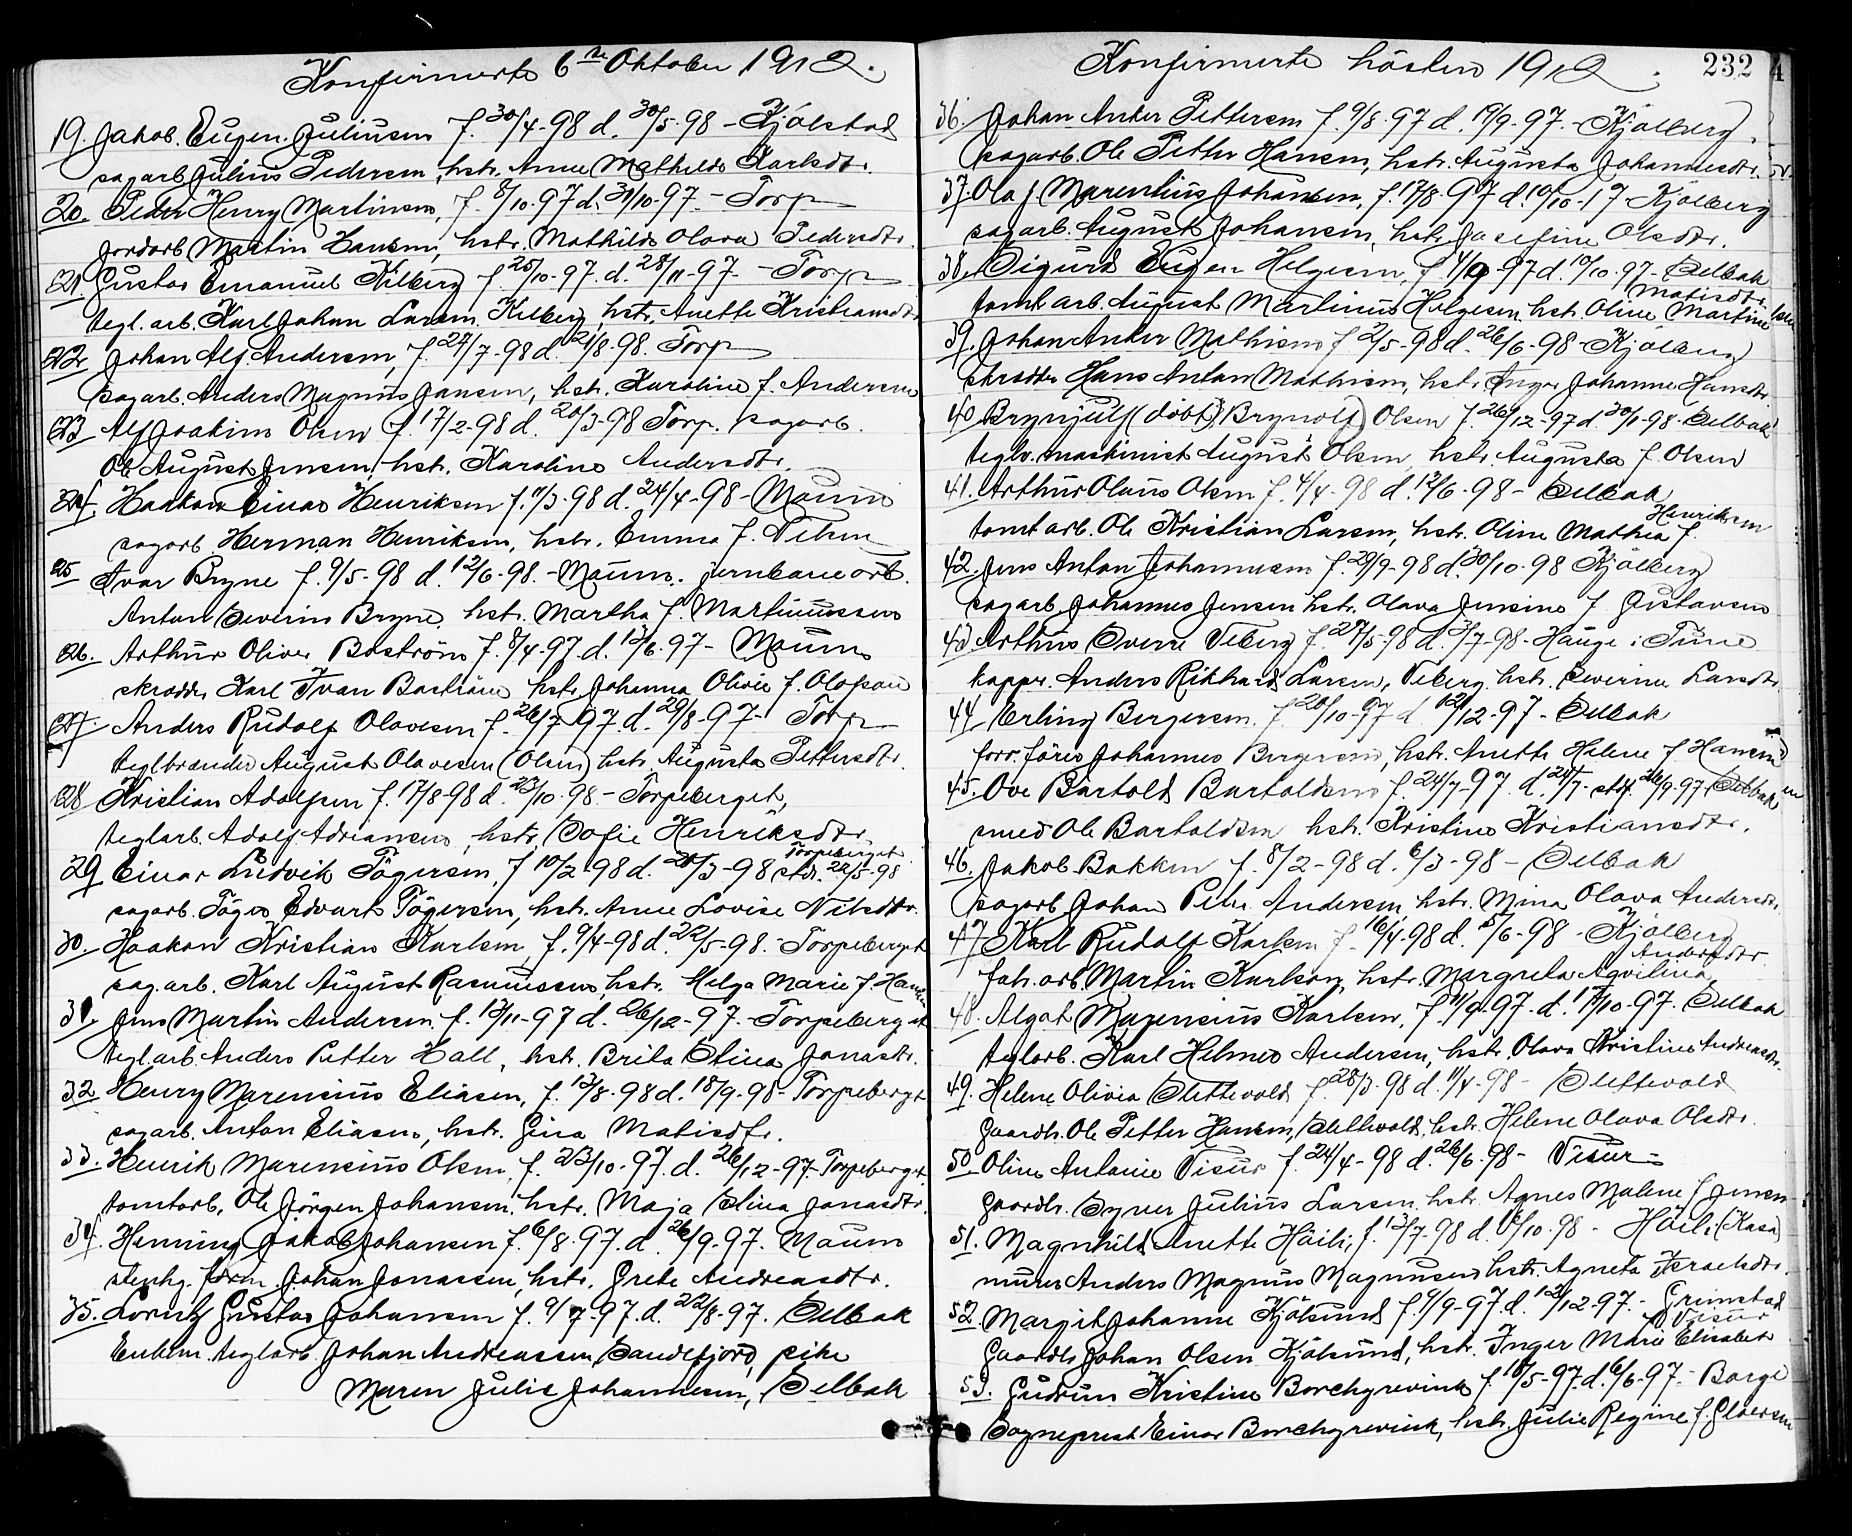 Konfirmerte 6te Oktober 1912.
19. Jakob Eugen Juliusen f. 30/4-98 d. 30/5-98 - Kjölstad
sagarb. Julius Pedersen, hstr. Anne Mathilde Karlsdtr.
20. Peder Henry Martinsen, f. 8/10-97 d. 31/10-97. - Torp
jordarb. Martin Hansen, hstr. Mathilde Olava Pedersdtr.
21. Gustav Emanuel Kilberg f. 25/10-97. d. 28/11-97 - Torp
tegl.arb. Karl Johan Larsen Kilberg, hstr. Anette Kristiansdtr.
22. Johan Alf Andersen, f. 27/7-98 d. 21/8-98. Torp
sagarb. Anders Magnus Jansen, hstr. Karoline f. Andersen
23 Alf Joakim Olsen f. 17/2-98 d. 20/3-98 Torp. sagarb.
Ole August Jensen, hstr. Karoline Andersdtr.
24. Haakon Einar Henriksen f. 11/3-98 d. 24/4-98 - Moum
sagarb. Herman Henriksen, hstr. Emma f. Nilsen
25 Ivar Bryne f. 9/5-98 d. 12/6-98. - Moum. jernbanearb.
Anton Severin Bryne, hstr. Martha f. Martinussen
26. Arthur Oliver Boström f. 8/4-97. d. 13/6-97 - Moum
skrædder Karl Ivar Boström hstr. Johanna Olivia f. Olofson
27. Anders Rudolf Olavesen f. 26/7-97. d. 29/8-97 - Torp
teglbrænder August Olavesen (Olsen) hstr. Augusta Pettersdtr.
28 Kristian Adolfsen f. 17/8-98 d. 23/10-98. - Torpeberget,
teglarb. Adolf Adriansen, hstr. Sofie Henriksdtr.
Torpeberget
29 Einar Ludvik Tögersen, f. 10/2-98 d. 20/3-98 stdf. 22/5-98
sagarb. Töger Edvart Tögersen, hstr. Anne Lovise Nilsdtr.
30. Haakon Kristian Karlsen, f. 9/4-98 d. 22/5-98. - Torpeberget
sag.arb. Karl August Rasmussen, hstr. Helga Marie f. Hansen
31. Jens Martin Andersen f. 13/11-97 d. 26/12-97. - Torpeberget
tegl.arb. Anders Petter Hall, hstr. Brita Stina Jonasdtr.
32 Henry Marensius Eliasen, f. 13/8-98 d. 18/9-98 - Torpeberget
sagarb. Anton Eliasen, hstr. Gina Matisdtr.
33. Henrik Marensius Olsen, f. 23/10-97. d. 26/12-97. Torpeberget
tomtarb. Ole Jörgen Johansen, hstr. Maja Stina Jonasdtr.
34. Henning Jakob Johansen f. 6/8-97. d. 26/9-97. Moum
stenhg. form. Johan Jonassen, hstr. Grete Andreasdtr.
35. Lorentz Gustav Johansen f. 9/7-97. d. 22/8-97. Selbak
Enkem. teglarb. Johan Andreassen, Sandefjord, pike
Maren Julie Johannesen, Selbak
Konfirmerte hösten 1912.
232
36. Johan Anker Pettersen f. 9/8-97 d. 19/9-97. - Kjölberg.
sagarb. Ole Petter Hansen, hstr. Augusta Johannesdtr.
37. Olaf Marentius Johansen, f. 17/8-97 d. 10/10-97 - Kjölberg
sagarb. August Johansen, hstr. Josefine Olsdtr.
38. Sigurd Eugen Helgesen, f. 4/9-97 d. 10/10-97 - Selbak
Matisdtr.
tomtarb. August Martinius Helgesen, hstr. Oline Martine
39. Johan Anker Mathisen f. 2/5-98 d. 26/6-98 - Kjölberg
skrædder Hans Anton Mathisen, hstr. Inger Johanne Hansdtr.
40 Brynjulf (döbt: Brynolf) Olsen f. 26/12-97 d. 30/1-98. Selbak
teglv. maskinist August Olsen, hstr. Augusta f. Olsen
41. Arthur Olaus Olsen f. 4/4-98 d. 12/6-98 - Selbak
Henriksen
tomtarb. Ole Kristian Larsen, hstr. Oline Mathea f.
42. Jens Anton Johannesen f. 29/9-98 d. 30/10-98 Kjölberg
sagarb. Johannes Jensen hstr. Olava Jensine f. Gustavsen
43 Arthur Sverre Viberg f. 27/5-98 d. 3/7-98 - Hauge i Tune
kopper. Anders Rikhard Larsen, Viberg, hstr. Severine Larsdtr.
44. Erling Bergersen f. 20/10-97 d. 12/12-97 - Selbak
forr.förer Johannes Bergersen, hstr. Anette Helene f. Hansen
45. Ove Bartold Bartoldsen f. 24/7-97. d. 24/7- stdf. 26/9-97. Selbak
smed Ole Bartoldsen hstr. Kristine Kristiansdtr.
46. Jakob Bakken f. 8/2-98 d. 6/3-98 - Selbak
sagarb. Johan Peter Andersen hstr. Mina Olava Andersdtr.
47 Karl Rudolf Karlsen f. 16/4-98 d. 5/6-98 - Kjölberg
Andersdtr.
fabr.arb. Martin Karlson, hstr. Margreta Aqvilina
48. Algot Magensius Karlsen, f. 11/9-97. d. 17/10-97. Selbak
teglarb. Karl Helmer Andersen, hstr. Olava Kristine Andreasdtr.
49. Helene Olivia Slettevold f. 28/3-98 d. 11/4-98 - Slettevold
Gaardb. Ole Petter Hansen, Slettevold, hstr. Helene Olava Olsdtr.
50. Oline Antonie Visur f. 24/4-98 d. 26/6-98 - Visur
Gaardb. Syver Julius Larsen, hstr. Agnes Malene f. Jensen
51. Magnhild Anette Höili, f. 13/7-98 d. 16/10-98 - Höili (Kasa)
murer Anders Magnus Magnusen hstr. Agneta Israelsdtr.
52. Margit Johanne Kjölsund f. 9/9-97 d. 12/12-97. - Grimstad
Visur
Gaardb. Johan Olsen Kjölsund, hstr. Inger Marie Elisabet
53. Gudrun Kristine Borchgrevink f. 10/5-97. d. 6/6-97 - Borge
Sogneprest Einar Borchgrevink, hstr. Julie Regine f. Gloersen